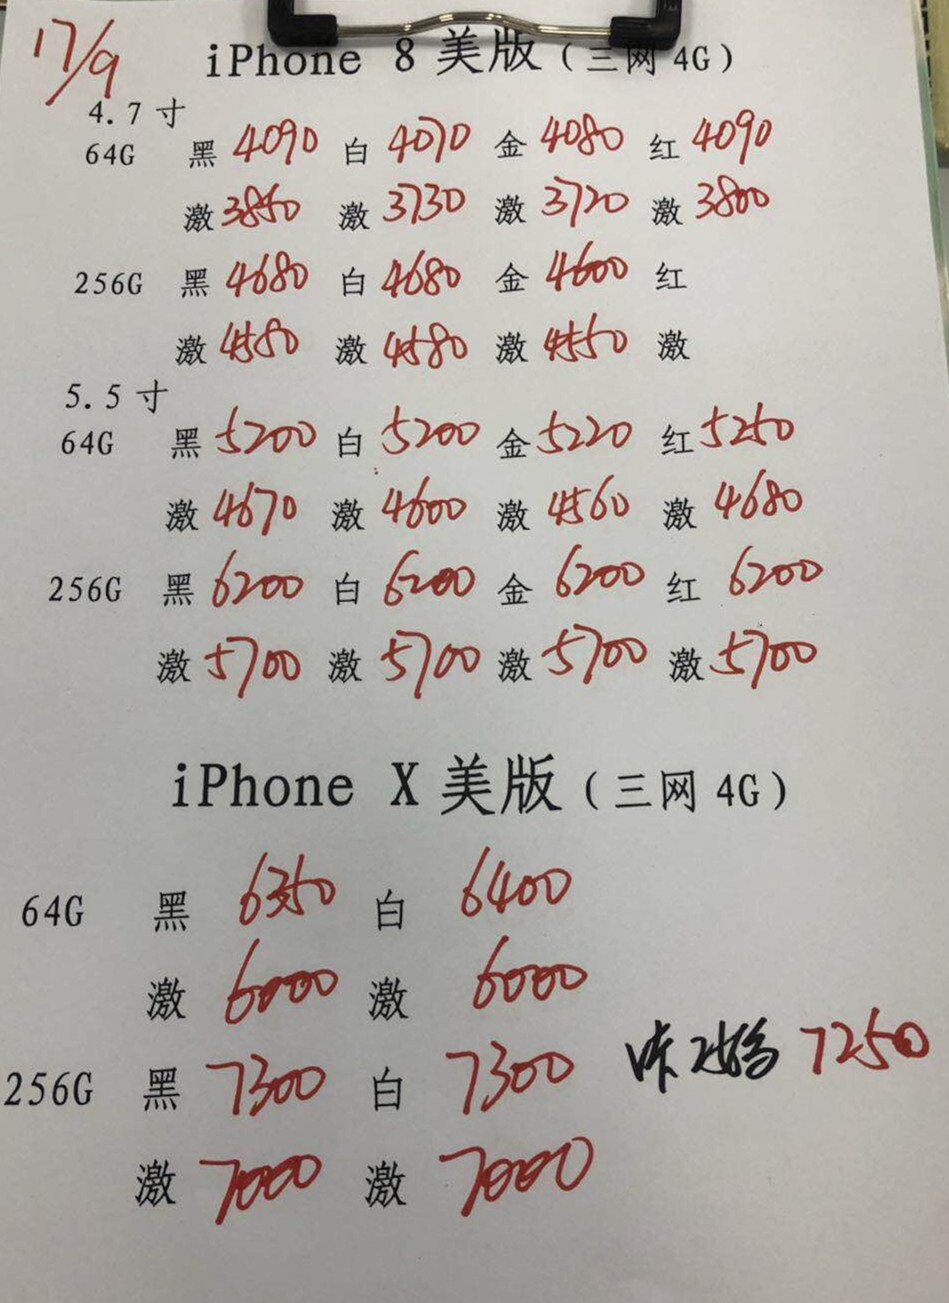 17/9
iPhone 8 美版(三网 4G)
4.7 寸
64G 黑 4090 白 4070 金 4080 红 4090
激 3850 激 3730 激 3720 激 3800
256G 黑 4680 白 4680 金 4600 红
激 4580 激 4580 激 4550 激
5.5 寸
64G 黑 5200 白 5200 金 5220 红 5250
激 4670 激 4600 激 4560 激 4680
256G 黑 6200 白 6200 金 6200 红 6200
激 5700 激 5700 激 5700 激 5700
iPhone X 美版(三网 4G)
64G 黑 6350 白 6400
激 6000 激 6000
256G 黑 7300 白 7300 7250
激 7000 激 7000